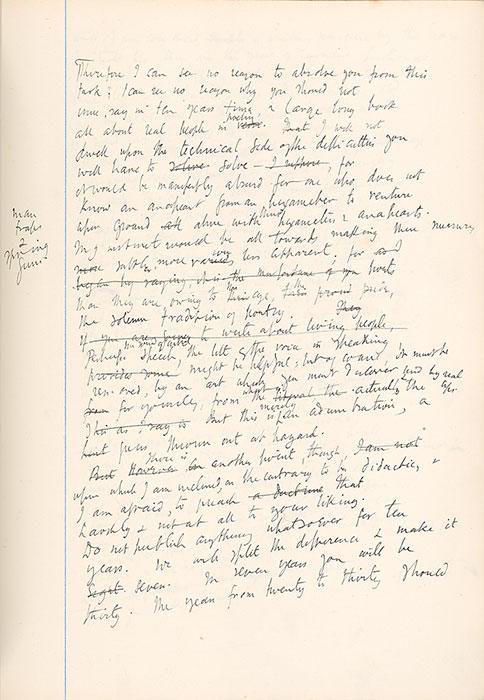 Therefore I can see no reason to absolve you from this
task; I can see no reason why you should not
write, say in ten years time, a large long book
all about real people in poetry verse. That I will not
dwell upon the technical side of the difficulties you
will have to solve solve – I suppose, for
it would be manifestly absurd for one who does not
know an anapaest from an hexameter to venture
upon ground alive with hexameters & anapaests.
man
traps
&
spring
guns
My instinct would be all towards making these measures
more subtle, more various less apparent, for
began by saying, it is the misfortune of you poets
than they are owing to the age, the proud pride,
the solemn tradition of poetry. They
If you are going to write about living people,
Perhaps speech, the lilt of the voice in speaking
might be helpful; but of course, it must be
rendered, by an art which you must discover and by
for yourselves, from the the actually the
as I say is But this is merely an adumbration, a
hint guess, thrown out at hazard.
But However There is another point, though, I am not
upon which I am inclined, on the contrary to be didactic, &
I am afraid, to preach a doctrine that
harshly & not at all to your liking.
Do not publish anything whatsoever for ten
years. We will split the difference & make it
Eight. seven. In seven years you will be
thirty. The years from twenty to thirty should